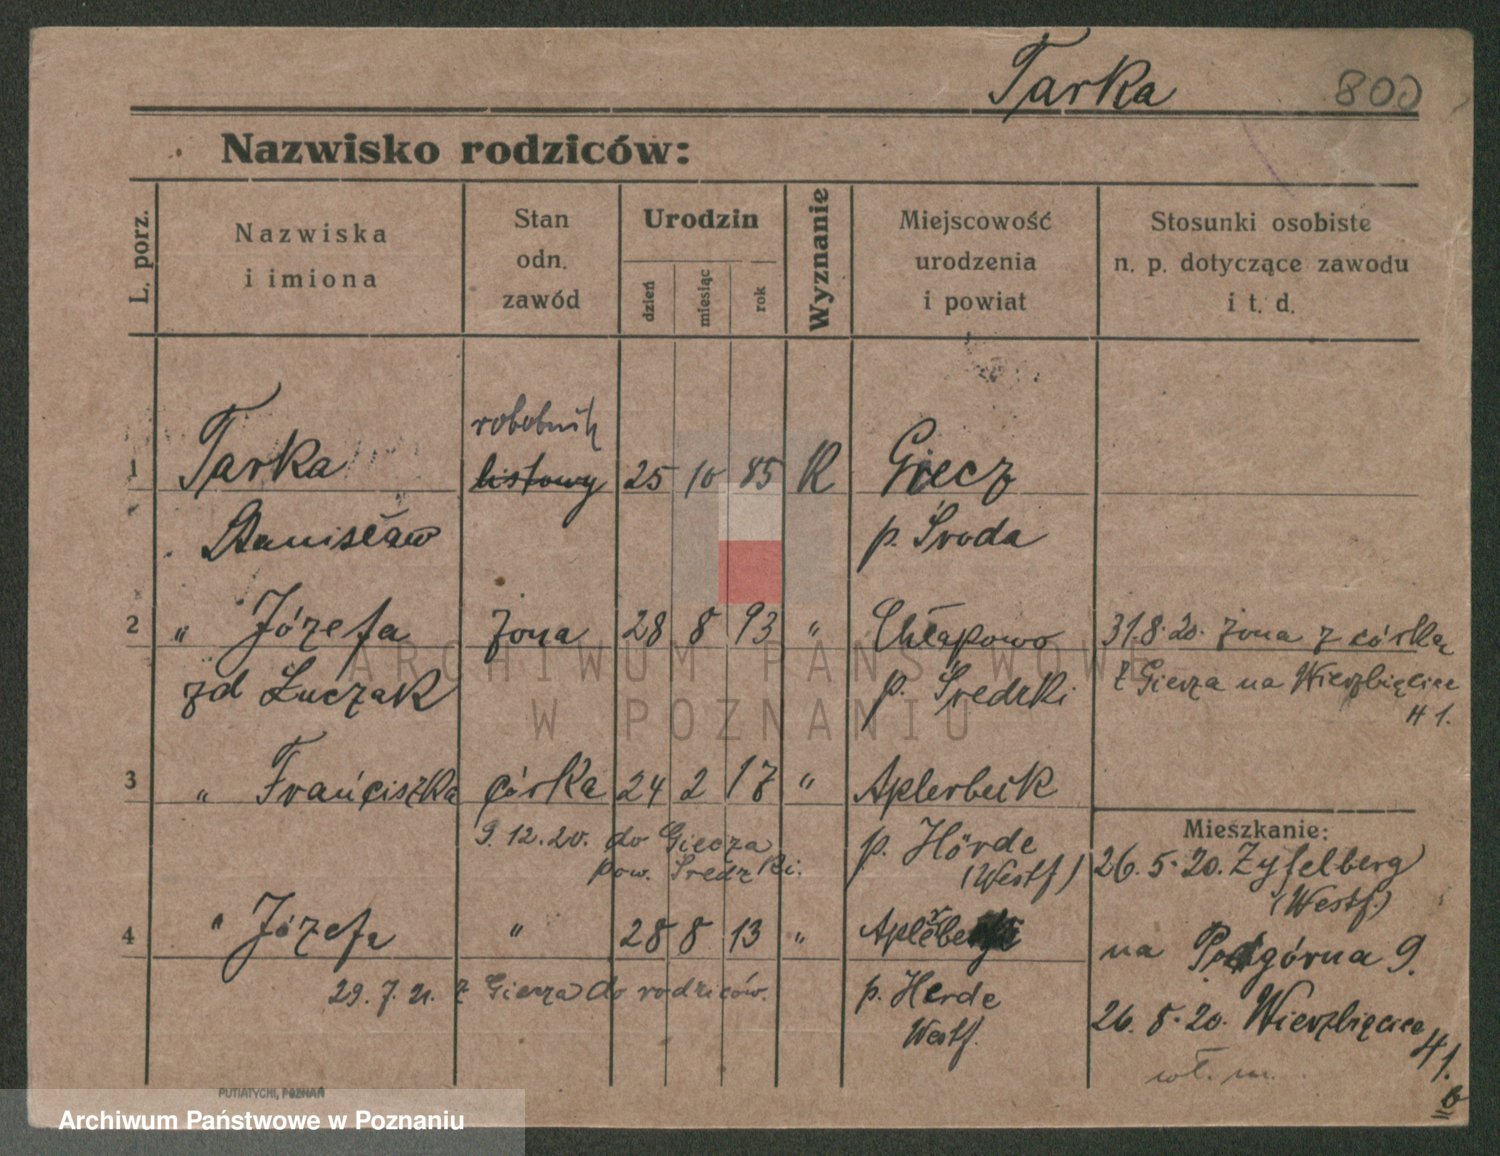 Tarka 800
Nazwisko rodziców:
L. porz.
Nazwiska
i imiona
Stan
odn.
zawód
Urodzin
dzień
miesiąc
rok
Wyznanie
Miejscowość
urodzenia
i powiat
Stosunki osobiste
n. p. dotyczące zawodu
i t. d.
robotnik
1 Tarka listowy 25 10 85 R Giecz
Stanisław p. Środa
2 " Józefa żona 28 8 93 " Chłapowo 31.8.20. żona z córką
zd Łuczak p. Średzki z Giecza na Wierzbięcice
41.
3 " Franciszka córka 24 2 17 " Aplerbeck
Mieszkanie:
9.12.20. do Giecza p. Hörde 26.5.20.
pow. Średzki. (Westf) (Westf.)
4 " Józefa " 28 8 13 " na Podgórna 9.
29.7.21. z Giecza do rodziców. p. Herde 26.5.20. Wierzbięcice
Westf. 41.
PUTIATYCKI, POZNAŃ
ARCHIWUM PAŃSTWOWE
W POZNANIU
Archiwum Państwowe w Poznaniu